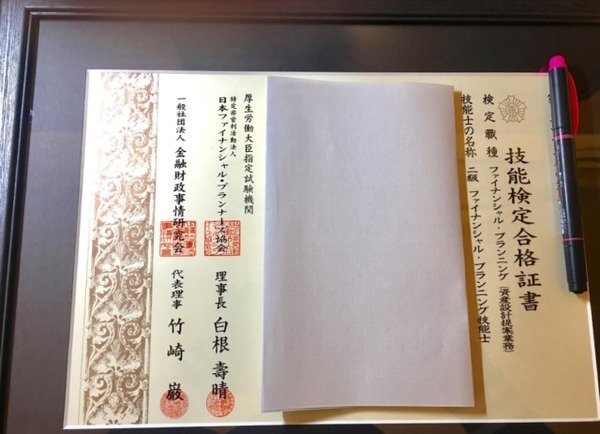 技能検定合格証書
検定職種 ファイナンシャル・プランニング（資産設計提案業務）
技能士の名称 二級 ファイナンシャル・プランニング技能士
厚生労働大臣指定試験機関
特定非営利活動法人
日本ファイナンシャル・プランナーズ協会
理事長 白根 壽晴
一般社団法人 金融財政事情研究会
代表理事 竹崎 巌